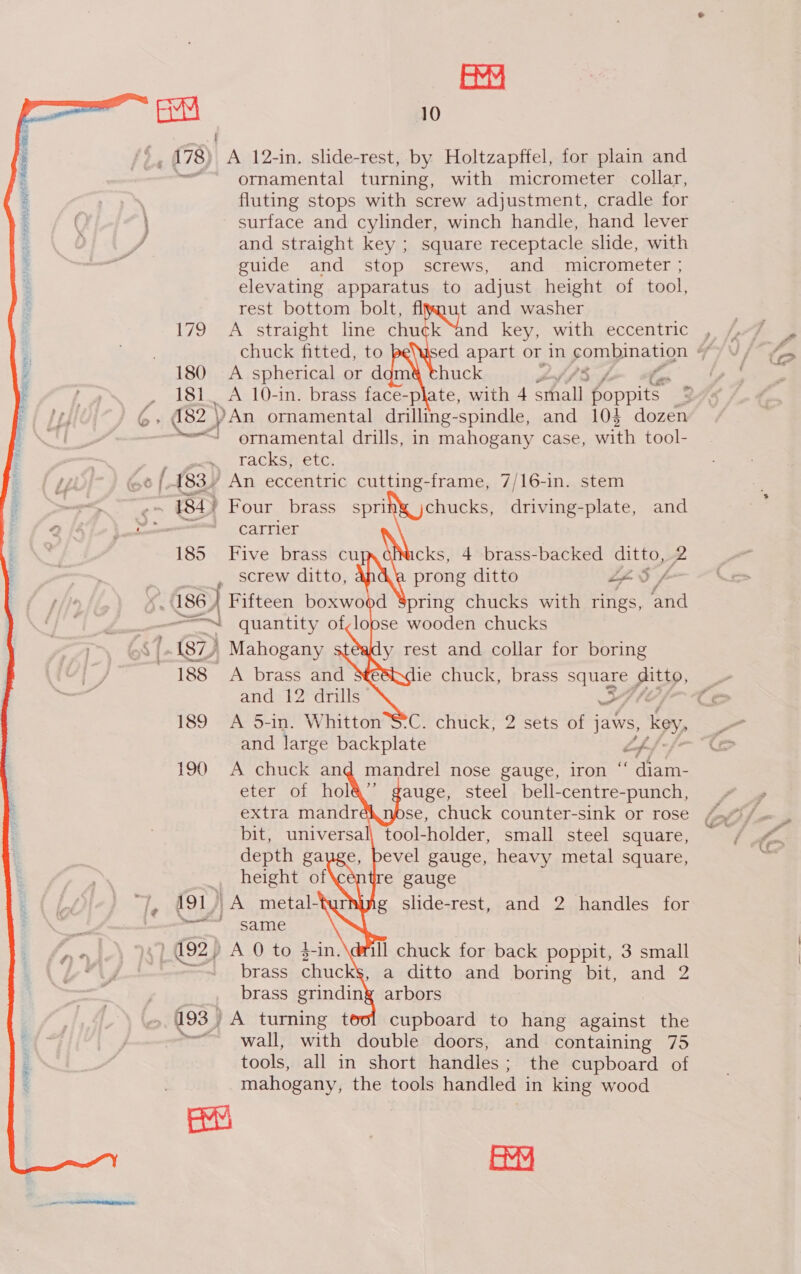 EMM
EMM
10
178 A 12-in. slide-rest, by Holtzapffel, for plain and
ornamental turning, with micrometer collar,
fluting stops with screw adjustment, cradle for
surface and cylinder, winch handle, hand lever
and straight key ; square receptacle slide, with
guide and stop screws, and micrometer ;
elevating apparatus to adjust height of tool,
rest bottom bolt, flynut and washer
179 A straight line chuck and key, with eccentric
chuck fitted, to be used apart or in combination
180 A spherical or dome chuck
181 A 10-in. brass face-plate, with 4 small poppits
182 An ornamental drilling-spindle, and 10½ dozen
ornamental drills, in mahogany case, with tool-
racks, etc.
183 An eccentric cutting-frame, 7/16-in. stem
184 Four brass spring chucks, driving-plate, and
carrier
185 Five brass cup chucks, 4 brass-backed ditto, 2
screw ditto, and a prong ditto
186 Fifteen boxwood spring chucks with rings, and
quantity of loose wooden chucks
187 Mahogany steady rest and collar for boring
188 A brass and steel die chuck, brass square ditto,
and 12 drills
189 A 5-in. Whitton S.C. chuck, 2 sets of jaws, key,
and large backplate
190 A chuck and mandrel nose gauge, iron “ diam-
eter of hole,” gauge, steel bell-centre-punch,
extra mandrel nose, chuck counter-sink or rose
bit, universal tool-holder, small steel square,
depth gauge, bevel gauge, heavy metal square,
height of centre gauge
191 A metal-turning slide-rest, and 2 handles for
same
192 A 0 to ½-in. drill chuck for back poppit, 3 small
brass chucks, a ditto and boring bit, and 2
brass grinding arbors
193 A turning tool cupboard to hang against the
wall, with double doors, and containing 75
tools, all in short handles ; the cupboard of
mahogany, the tools handled in king wood
EMM
EMM